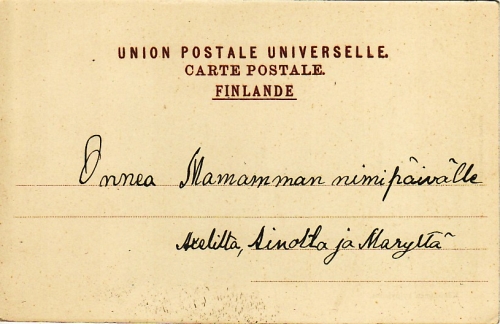 UNION POSTALE UNIVERSELLE.
CARTE POSTALE.
FINLANDE
Onnea Mamamman nimipäivälle
Axelilta, Ainolta ja Maryltä